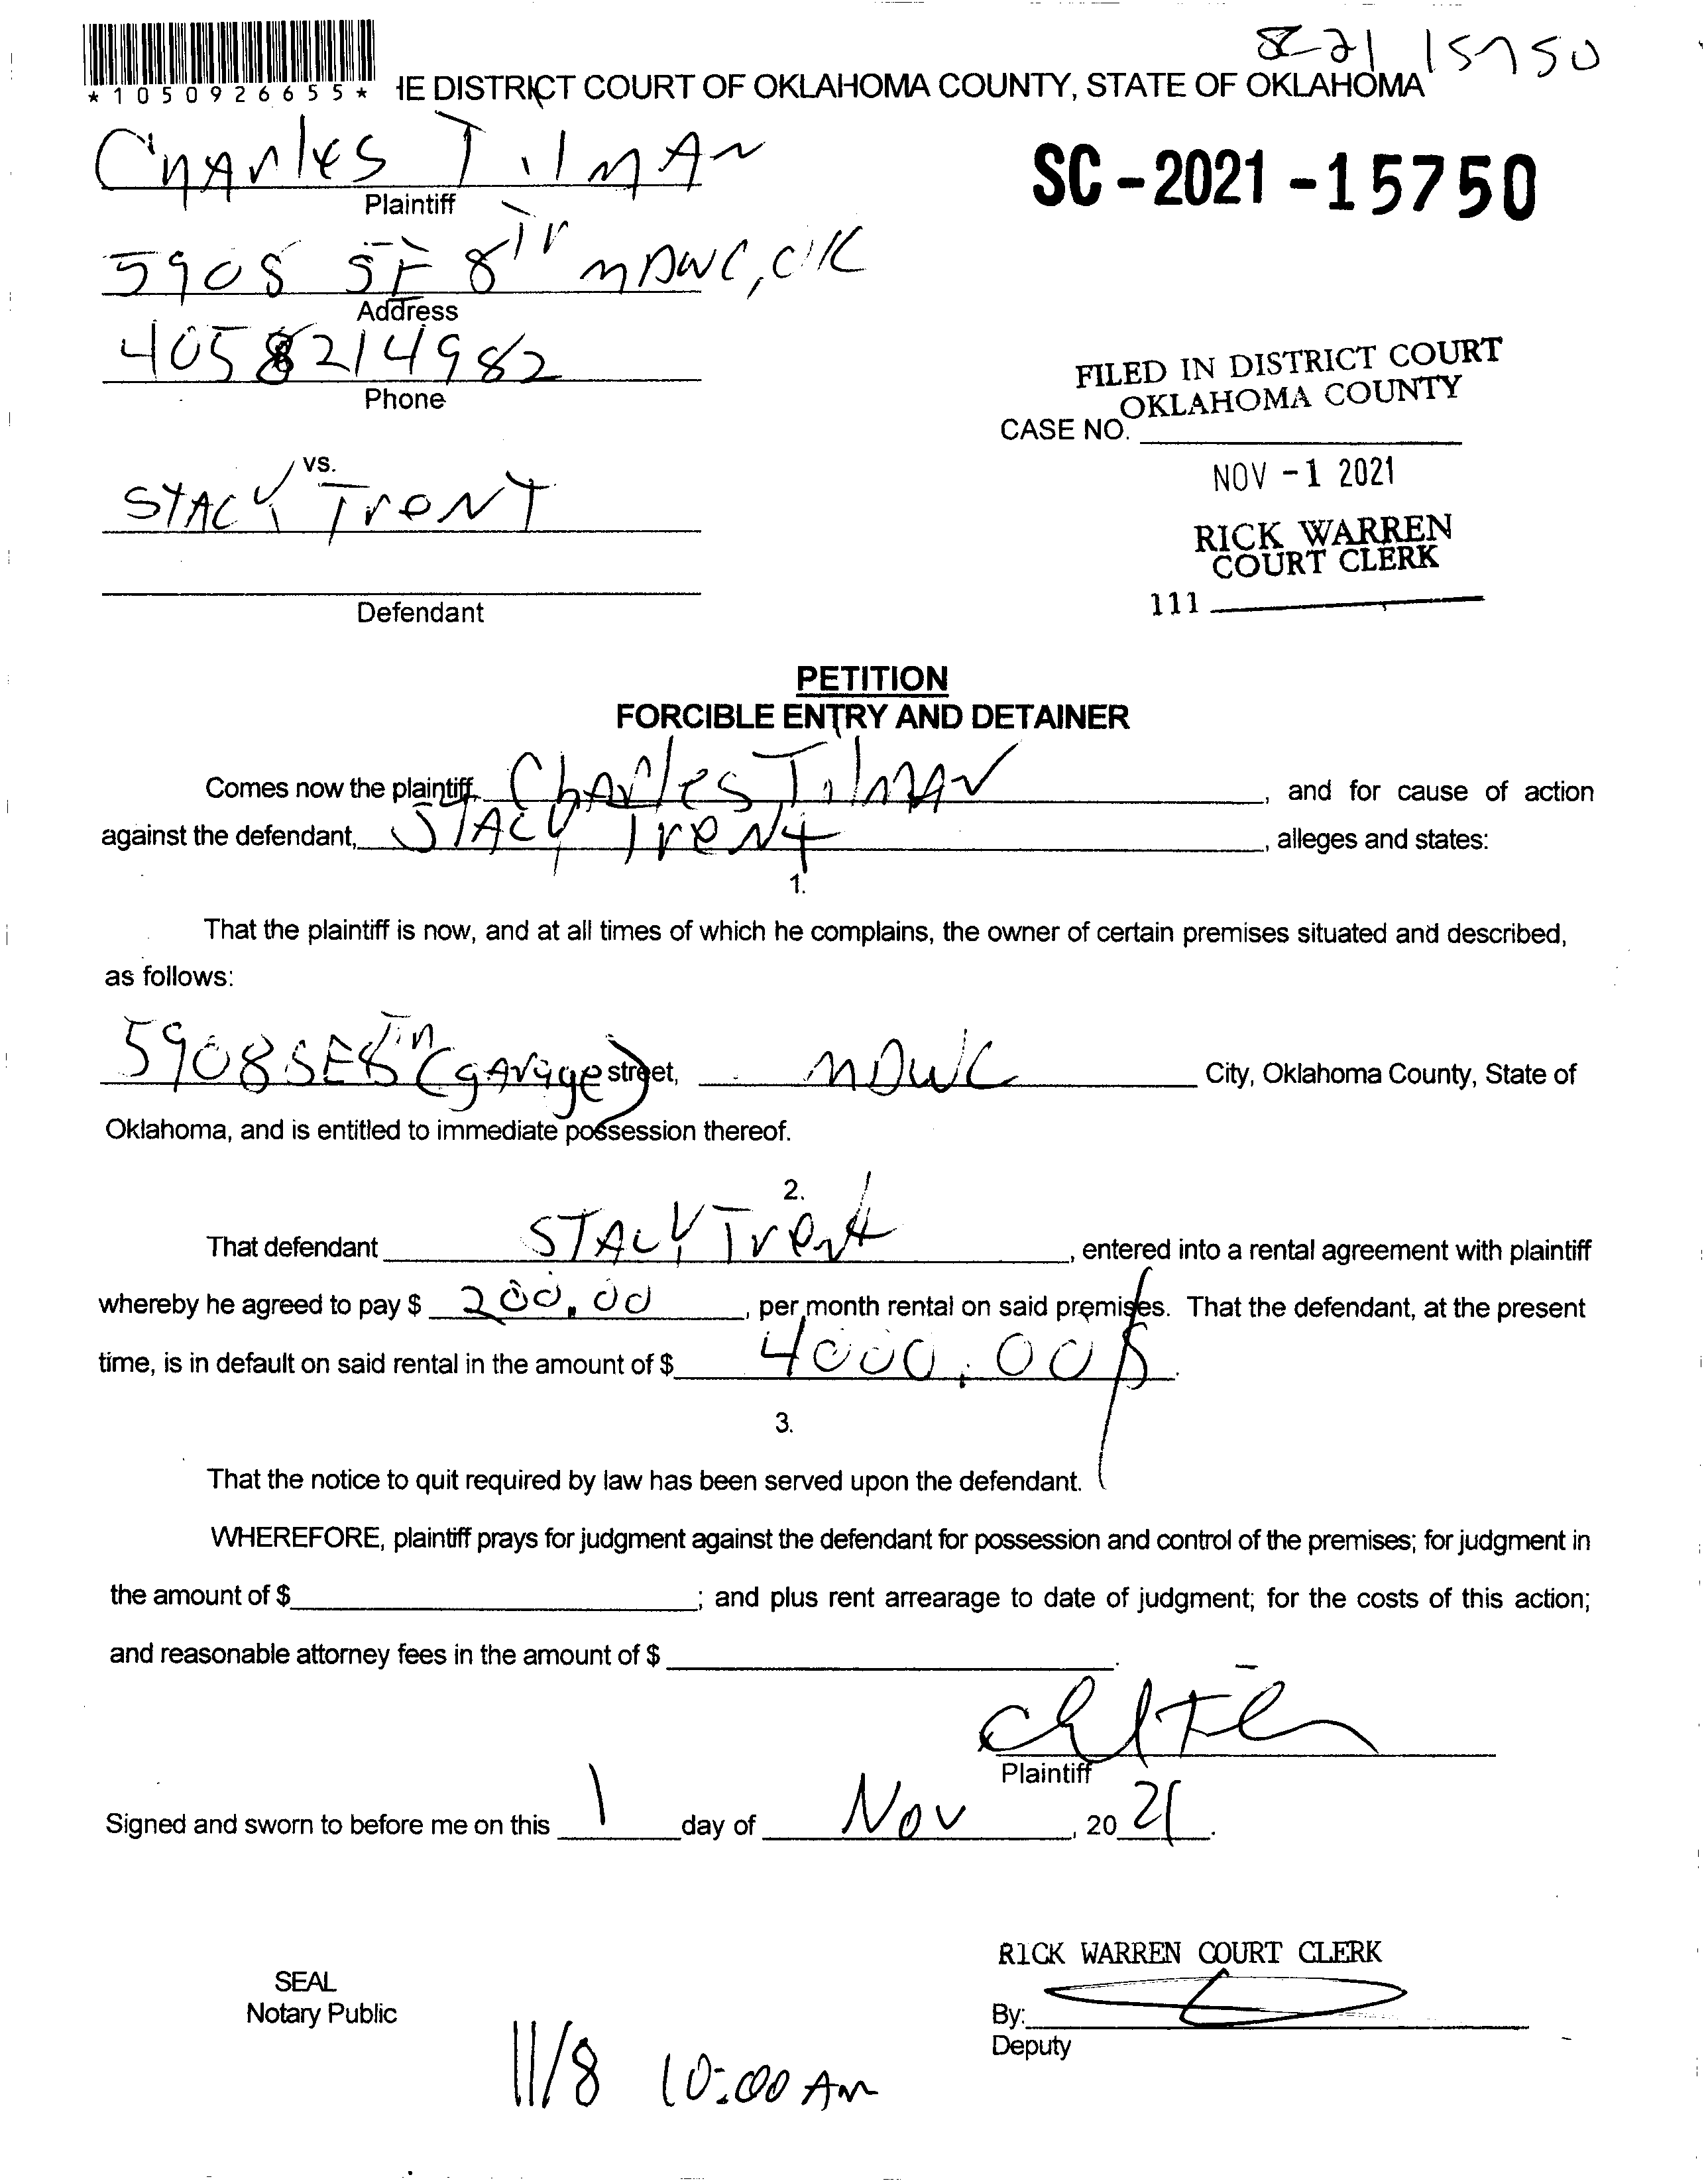 SC21 15750
*1050926655* HE DISTRICT COURT OF OKLAHOMA COUNTY, STATE OF OKLAHOMA
Charles Tilman
SC-2021-15750
Plaintiff
5908 SE 8TH MDWC, OK
Address
4058214982
Phone
FILED IN DISTRICT COURT
OKLAHOMA COUNTY
CASE NO.
NOV -1 2021
vs.
STACY Trent
RICK WARREN
COURT CLERK
111
Defendant
PETITION
FORCIBLE ENTRY AND DETAINER
Comes now the plaintiff, Charles Tilman, and for cause of action
against the defendant, STACY Trent, alleges and states:
1.
That the plaintiff is now, and at all times of which he complains, the owner of certain premises situated and described,
as follows:
5908 SE 8TH (garage) street, MDWC City, Oklahoma County, State of
Oklahoma, and is entitled to immediate possession thereof.
2.
That defendant STACY Trent, entered into a rental agreement with plaintiff
whereby he agreed to pay $ 200.00, per month rental on said premises. That the defendant, at the present
time, is in default on said rental in the amount of $ 4000.00.
3.
That the notice to quit required by law has been served upon the defendant.
WHEREFORE, plaintiff prays for judgment against the defendant for possession and control of the premises; for judgment in
the amount of $; and plus rent arrearage to date of judgment; for the costs of this action;
and reasonable attorney fees in the amount of $.
Plaintiff
Signed and sworn to before me on this 1 day of Nov, 20 21.
RICK WARREN COURT CLERK
SEAL
Notary Public
By:
Deputy
11/8 10:00 Am